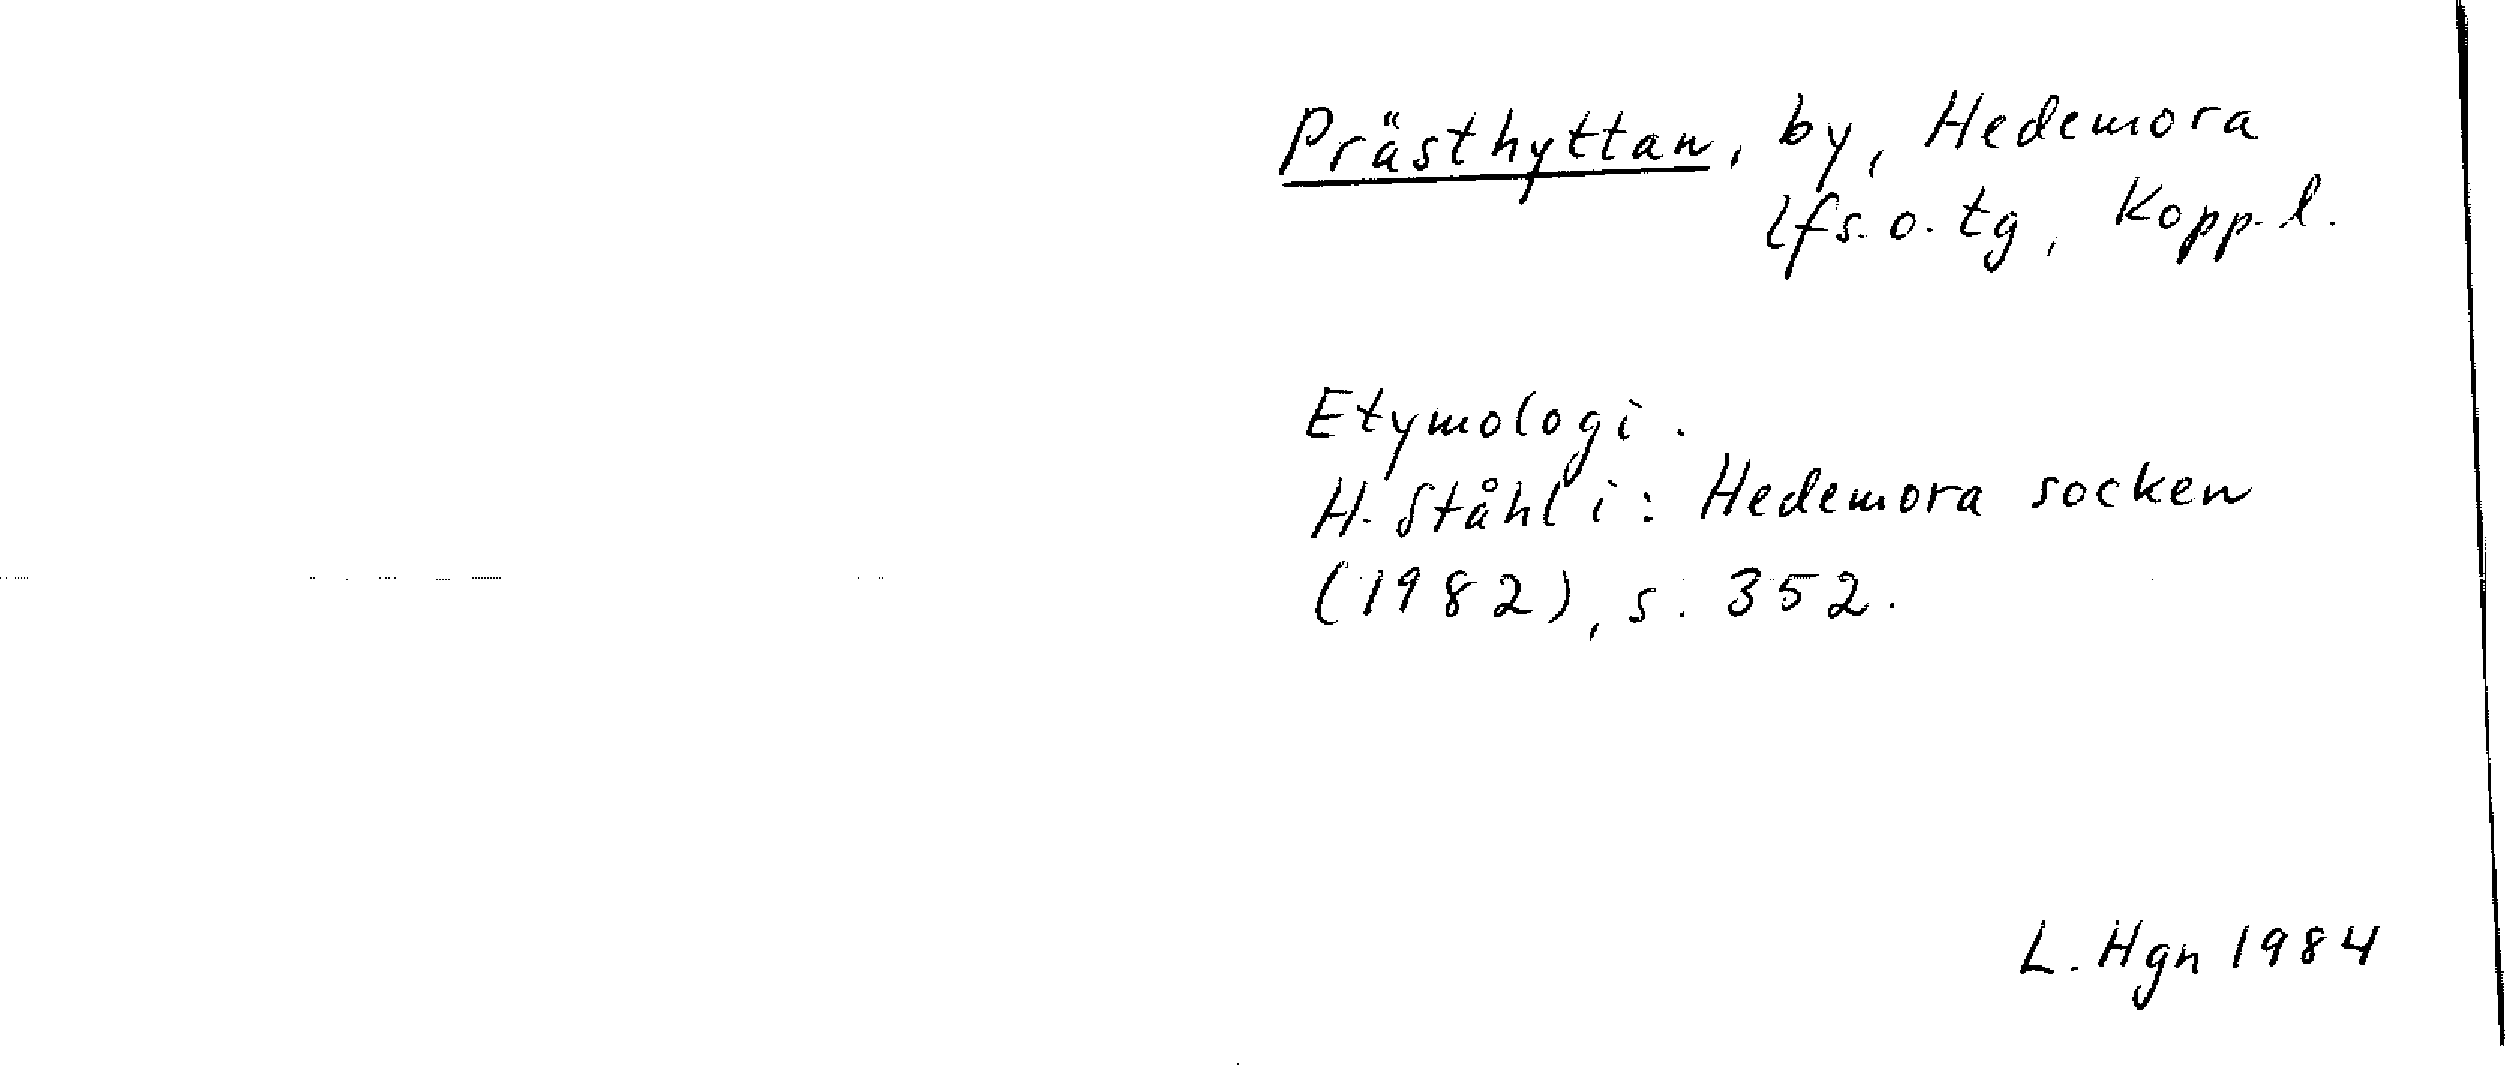 Prästhyttan, by, Hedemora
lfs. o. tg, Kopp. l.
Etymologi.
H. Ståhl i: Hedemora socken
(1982), s. 352.
L. Hgn 1984